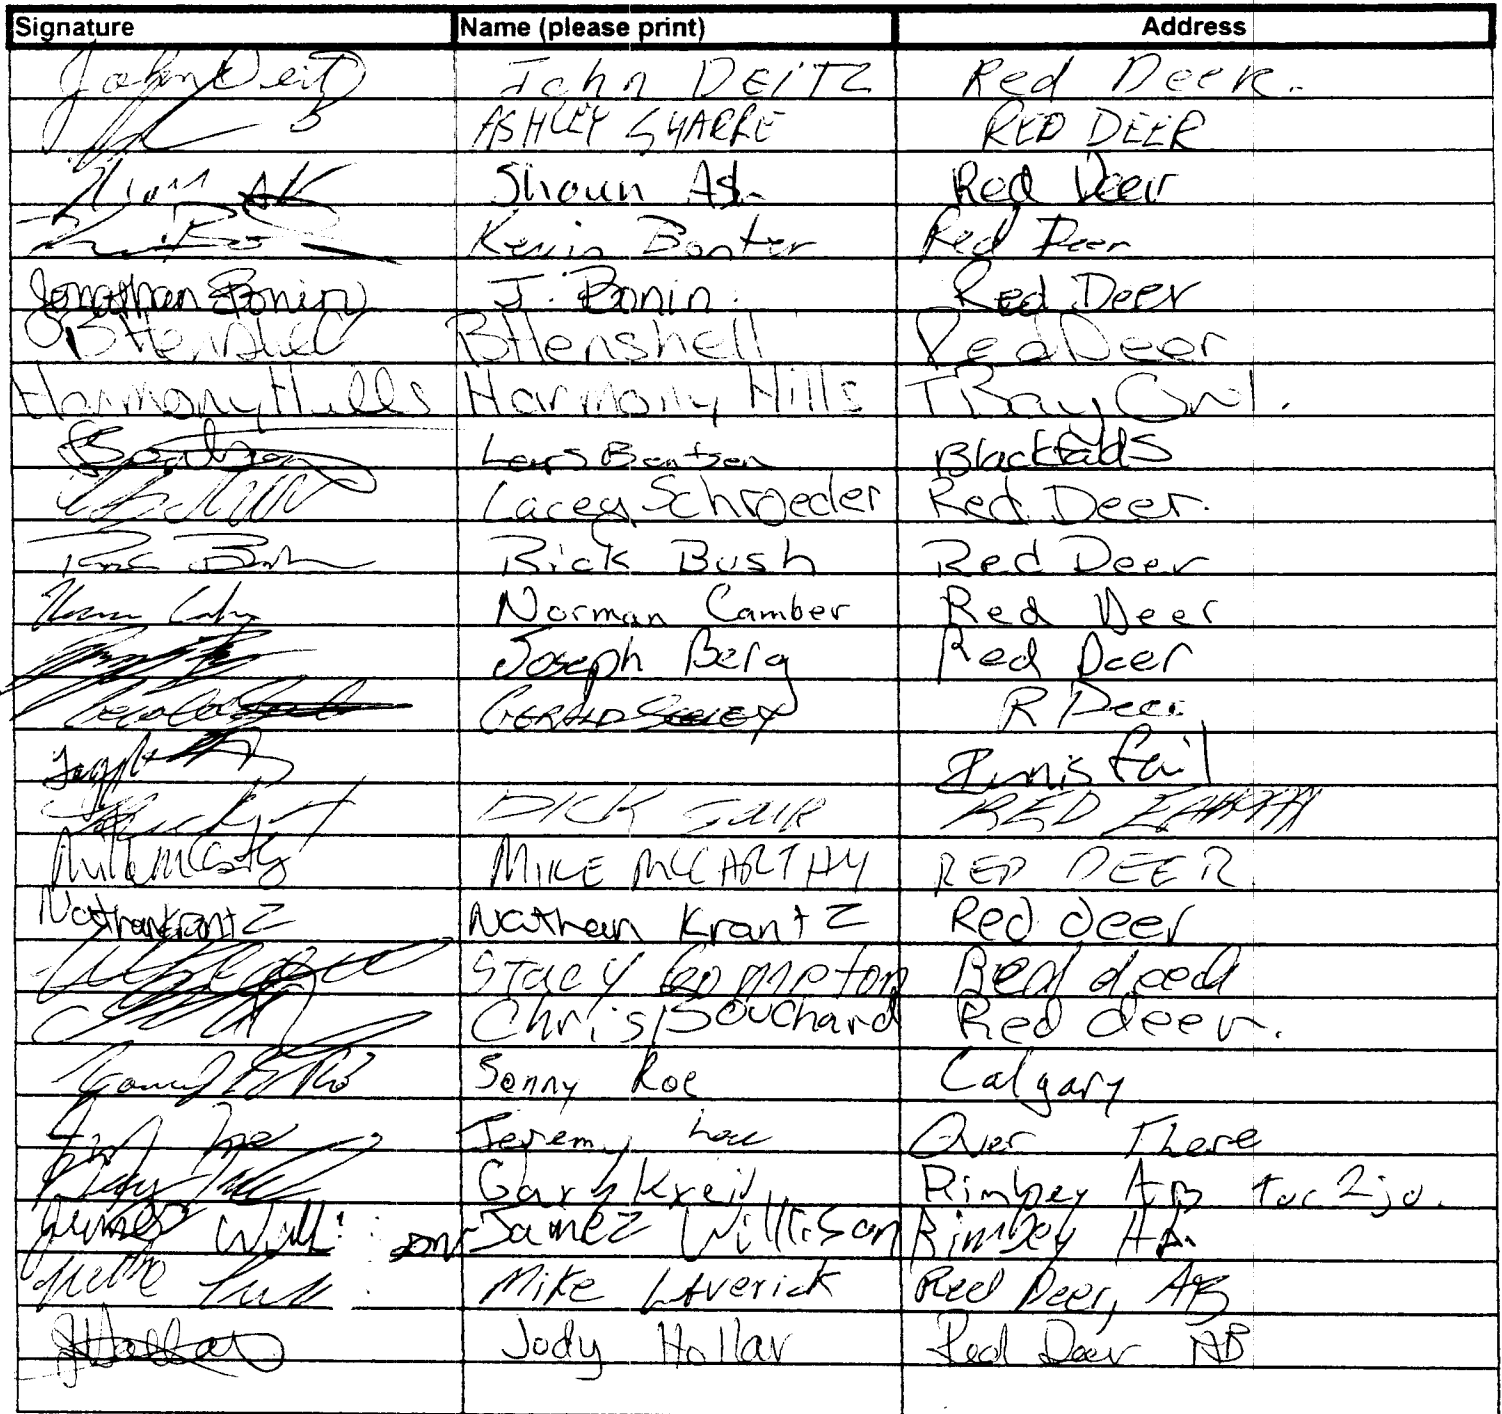 Signature Name (please print) Address
John Deitz John DEITZ Red Deer.
ASHLEY SHARRE RED DEER
Shaun Ash Red Deer
Kevin Bonter Red Deer
Jonathan Bonin J. Bonin. Red Deer
BHenshell BHenshell Red Deer
Harmony Hills Harmony Hills TBay Ont.
Lars Bentsen Blackfalds
Lacey Schroeder Red Deer.
Rick Bush Rick Bush Red Deer
Norman Camber Red Deer
Joseph Berg Red Deer
GERALD SEELEY R Deer
Innisfail
DICK RED
Mike McCarthy MIKE MCCARTHY RED DEER
Nathan Krantz Nathan Krantz Red deer
Stacy Compton Red deed
Chris Bouchard Red deer.
Sonny Roe Calgary
Jeremy Over There
Gary Kreil Rimbey AB toc 2jo.
James Willison Jamez Willison Rimbey AB.
Mike Laverick Red Deer, AB
JHollar Jody Hollar Red Deer AB